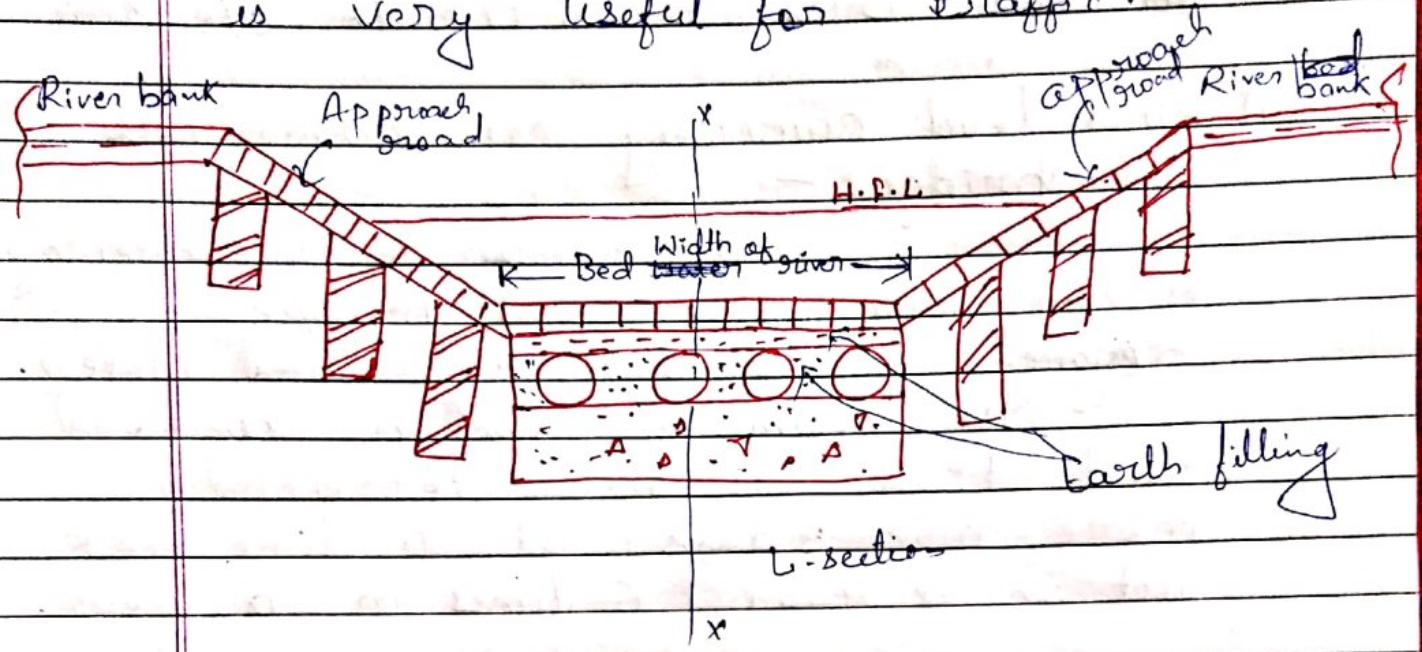 is very useful for traffic.
River bank
Approach
road
x
approach
road
River bed
bank
H.F.L.
Width of
Bed water river
Earth filling
L-section
x